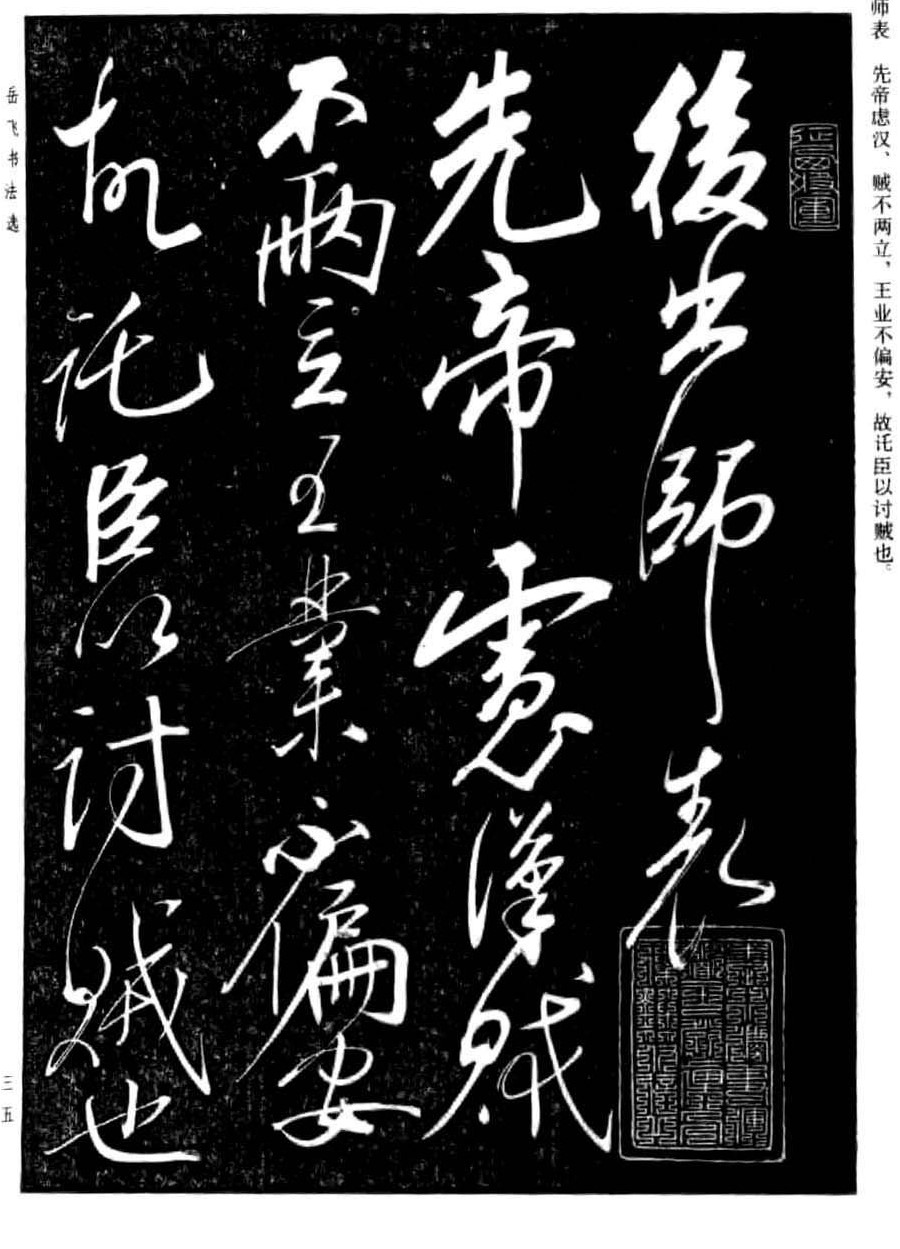 师表 先帝虑汉、贼不两立，王业不偏安，故讬臣以讨贼也。
後出師表
先帝慮漢賊
不兩立王業不偏安
故託臣以討賊也
岳飞书法选
三五